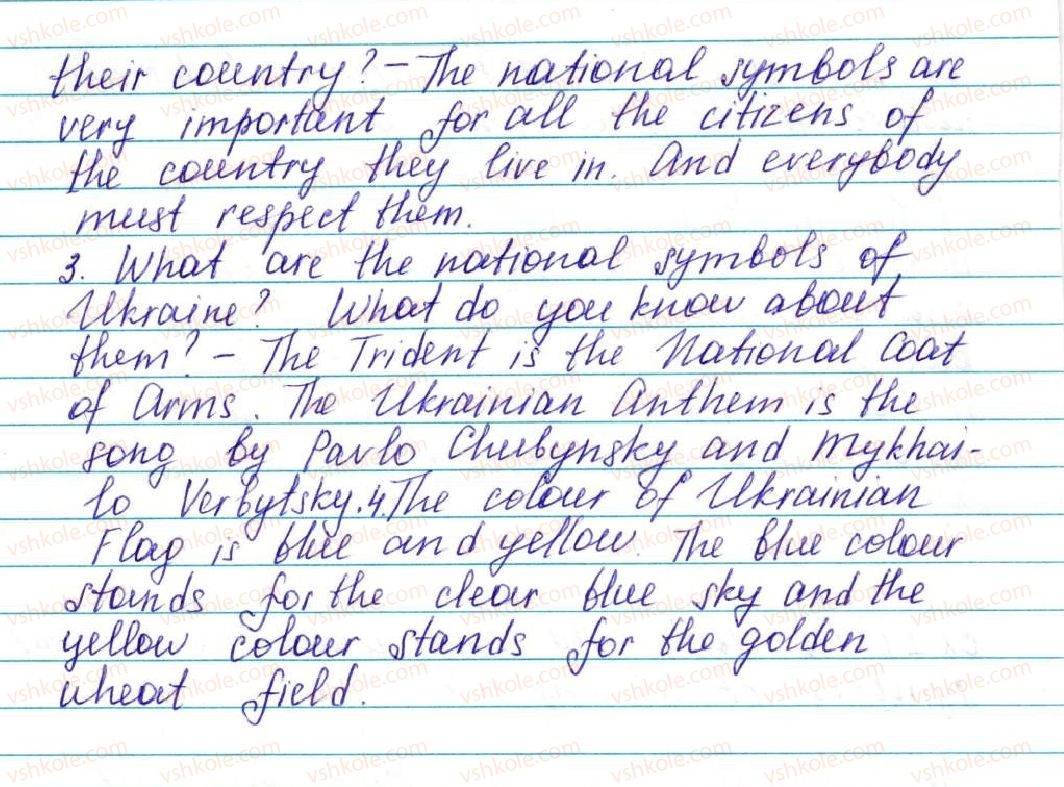 their country? – The national symbols are
very important for all the citizens of
the country they live in. And everybody
must respect them.
3. What are the national symbols of
Ukraine? What do you know about
them? – The Trident is the National Coat
of Arms. The Ukrainian Anthem is the
song by Pavlo Chubynsky and Mykhai-
lo Verbytsky. 4. The colour of Ukrainian
Flag is blue and yellow. The blue colour
stands for the clear blue sky and the
yellow colour stands for the golden
wheat field.